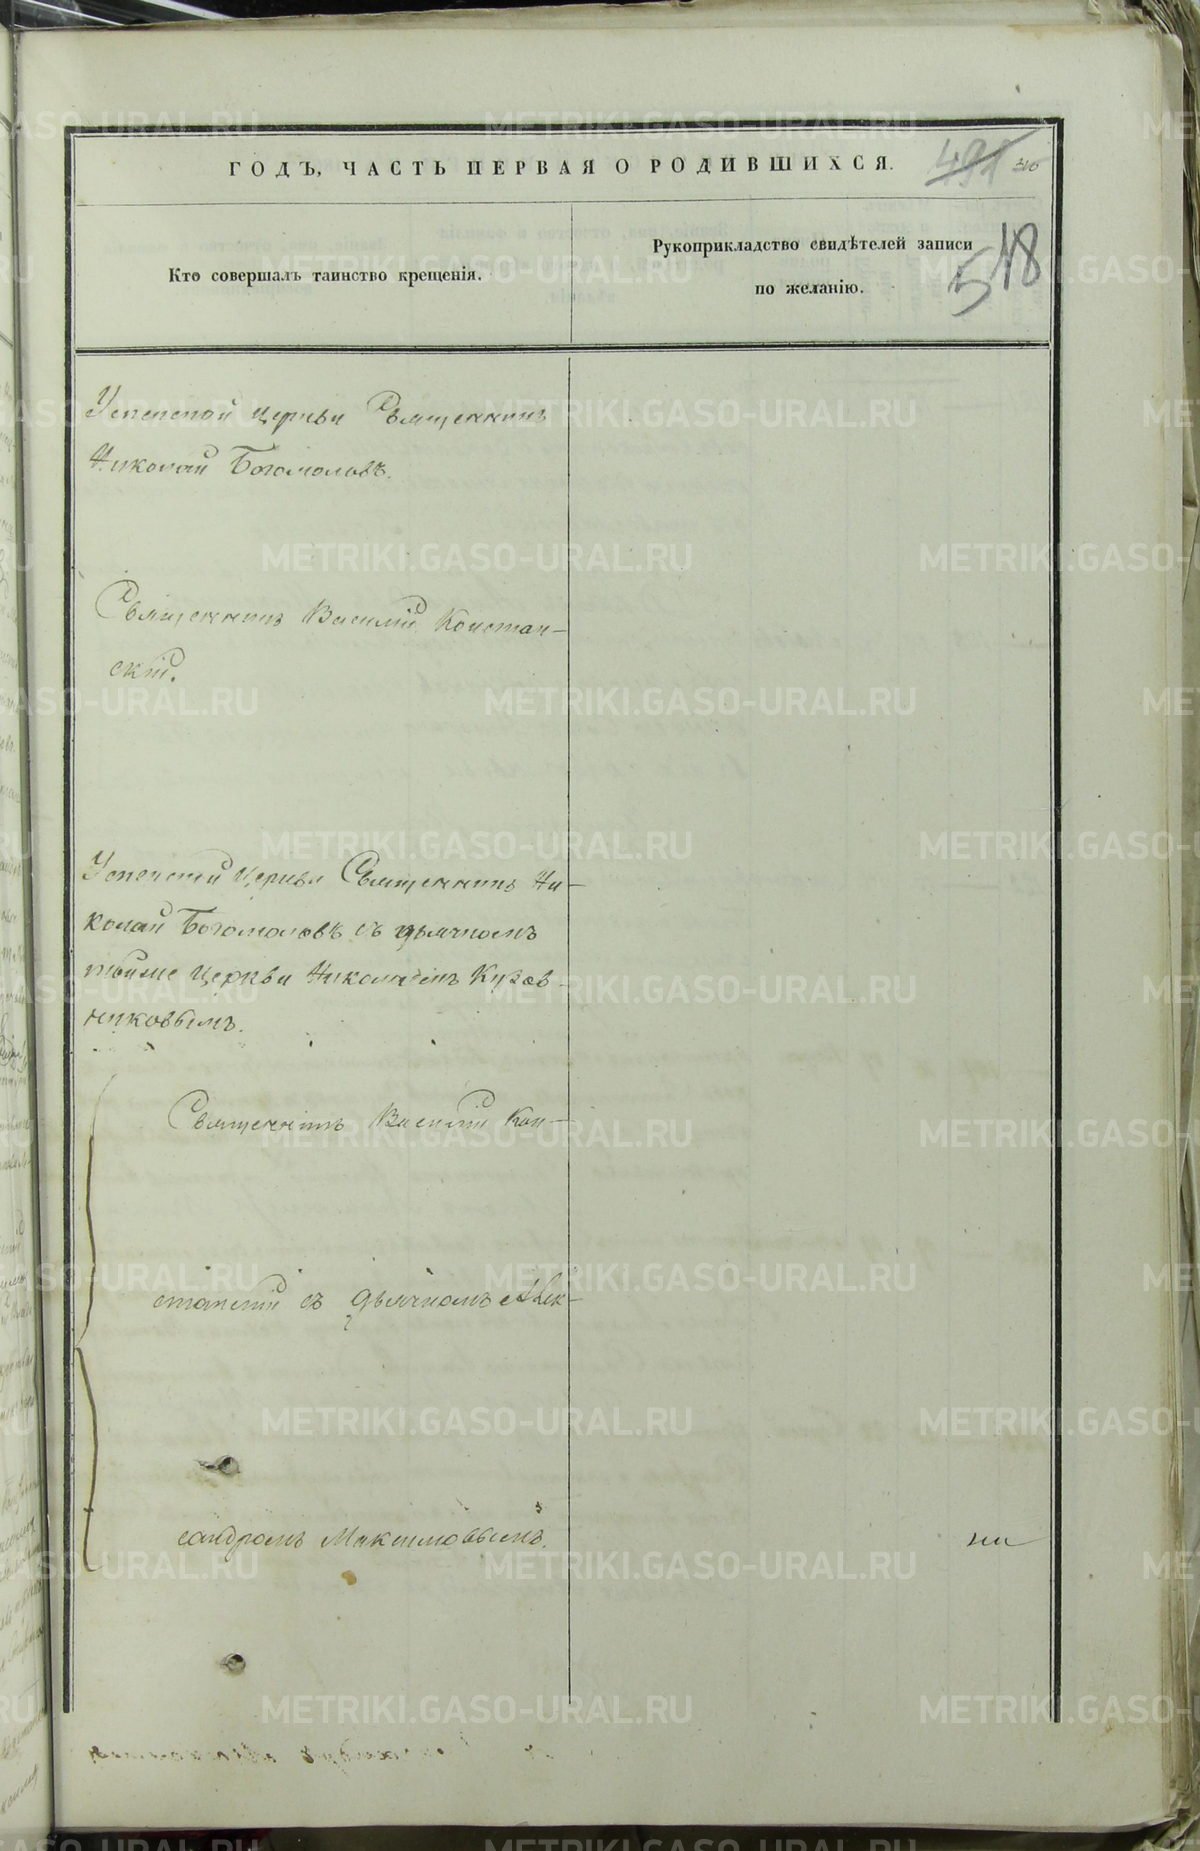 ГОДЪ, ЧАСТЬ ПЕРВАЯ О РОДИВШИХСЯ.
491 316
518
Кто совершалъ таинство крещенія.
Рукоприкладство свидѣтелей записи
по желанію.
Успенской церкви Священникъ
Николай Богомоловъ.
Священникъ Василій Констан-
скій.
Успенской Церкви Священникъ Ни-
колай Богомоловъ съ дьячкомъ
тойже Церкви Николаемъ Кузов-
никовымъ.
Священникъ Василій Кон-
станскій съ Дьячкомъ Алек-
сандромъ Максимовымъ.
METRIKI.GASO-URAL.RU